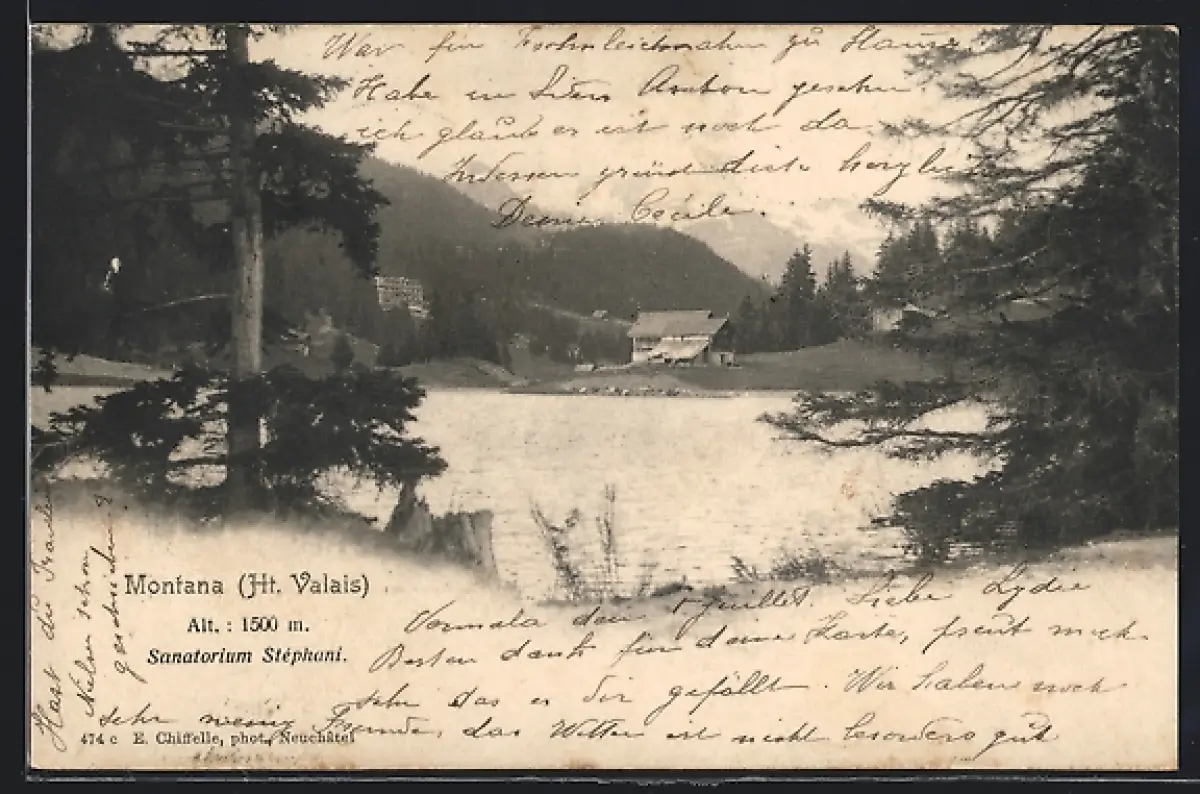 War für Frohnleichnahm zu Hause
Habe in Siders gesehen
ich glaube es ist noch da
Indessen grüsst dich herzlich
Deine Cécile.
Montana (Ht. Valais)
Alt. : 1500 m.
Sanatorium Stéphani.
Vermala den Juillet. Liebe Lydie
Besten dank für deine Karte, freut mich
sehr das es dir gefällt. Wir haben noch
sehr wenig Fremde, das Wetter ist nicht besonders gut
474 c E. Chiffelle, phot., Neuchâtel
Hast du
schon
geschrieben?